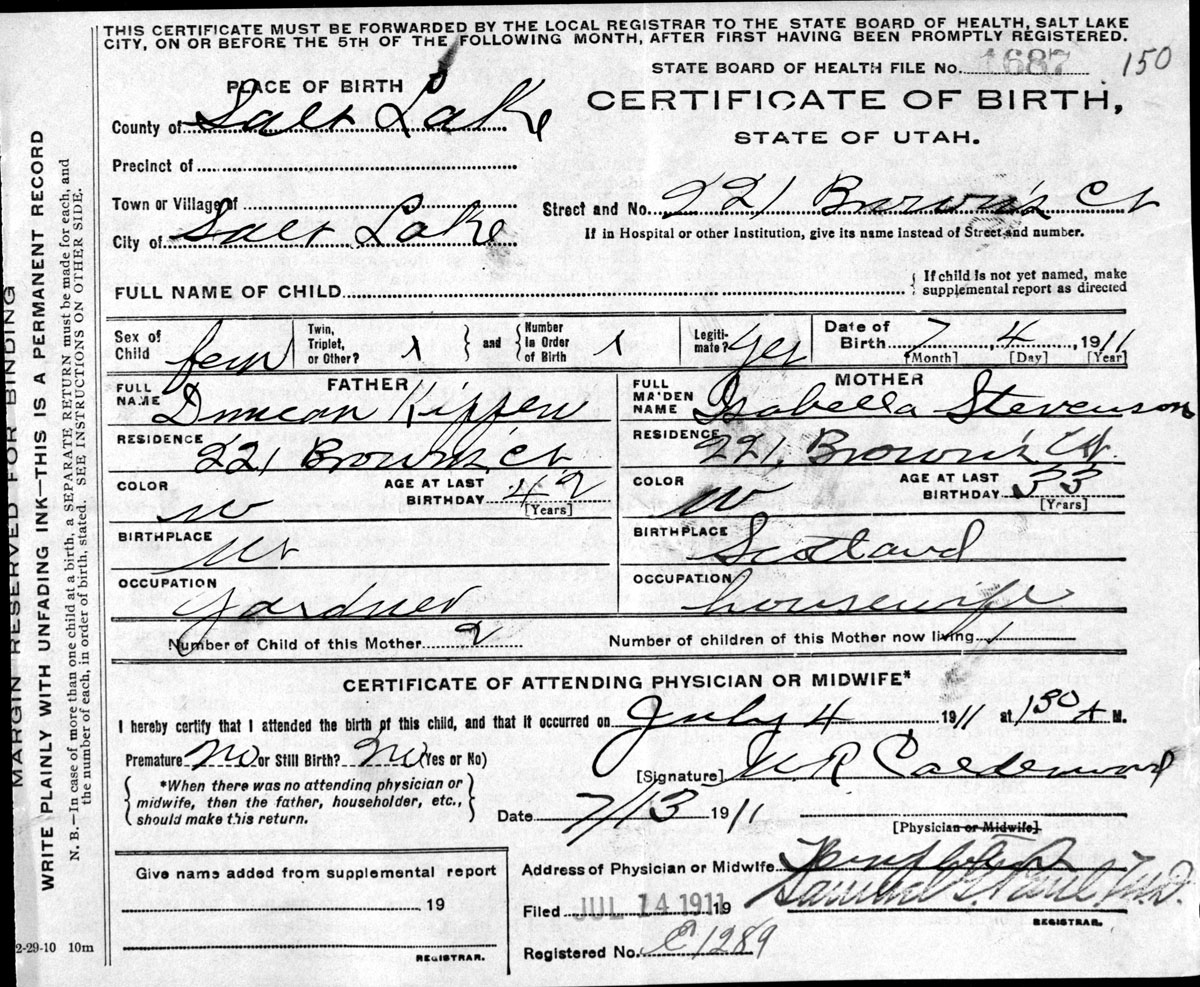 THIS CERTIFICATE MUST BE FORWARDED BY THE LOCAL REGISTRAR TO THE STATE BOARD OF HEALTH, SALT LAKE
CITY, ON OR BEFORE THE 5TH OF THE FOLLOWING MONTH, AFTER FIRST HAVING BEEN PROMPTLY REGISTERED.
STATE BOARD OF HEALTH FILE No. 1687 150
PLACE OF BIRTH
CERTIFICATE OF BIRTH,
STATE OF UTAH.
County of Salt Lake
Precinct of
Town or Village of
Street and No. 221 Brown's Ct
City of Salt Lake
If in Hospital or other Institution, give its name instead of Street and number.
FULL NAME OF CHILD
{ If child is not yet named, make
supplemental report as directed
Sex of Child fem
Twin, Triplet, or Other? 1 } and { Number in Order of Birth 1
Legiti-mate? yes
Date of Birth 7, 4, 1911
[Month] [Day] [Year]
FATHER
FULL NAME Duncan Kippen
MOTHER
FULL MAIDEN NAME Isabella Stevenson
RESIDENCE 221 Brown's Ct
RESIDENCE 221 Brown's Ct
COLOR W AGE AT LAST BIRTHDAY 42 [Years]
COLOR W AGE AT LAST BIRTHDAY 33 [Years]
BIRTHPLACE Ut
BIRTHPLACE Scotland
OCCUPATION Gardner
OCCUPATION housewife
Number of Child of this Mother 2
Number of children of this Mother now living 1
CERTIFICATE OF ATTENDING PHYSICIAN OR MIDWIFE*
I hereby certify that I attended the birth of this child, and that it occurred on July 4 1911 at 1 30 A M.
Premature no or Still Birth? no (Yes or No)
{ *When there was no attending physician or
midwife, then the father, householder, etc.,
should make this return. }
[Signature] W R Calderwood
Date 7/13 1911
[Physician or Midwife]
Give name added from supplemental report
19
REGISTRAR.
Address of Physician or Midwife
Filed JUL 14 1911 19 Samuel G. Paul M.D.
REGISTRAR.
Registered No. C 1289
MARGIN RESERVED FOR BINDING
WRITE PLAINLY WITH UNFADING INK—THIS IS A PERMANENT RECORD
N. B.—In case of more than one child at a birth, a SEPARATE RETURN must be made for each, and
the number of each, in order of birth, stated. SEE INSTRUCTIONS ON OTHER SIDE.
2-29-10 10m